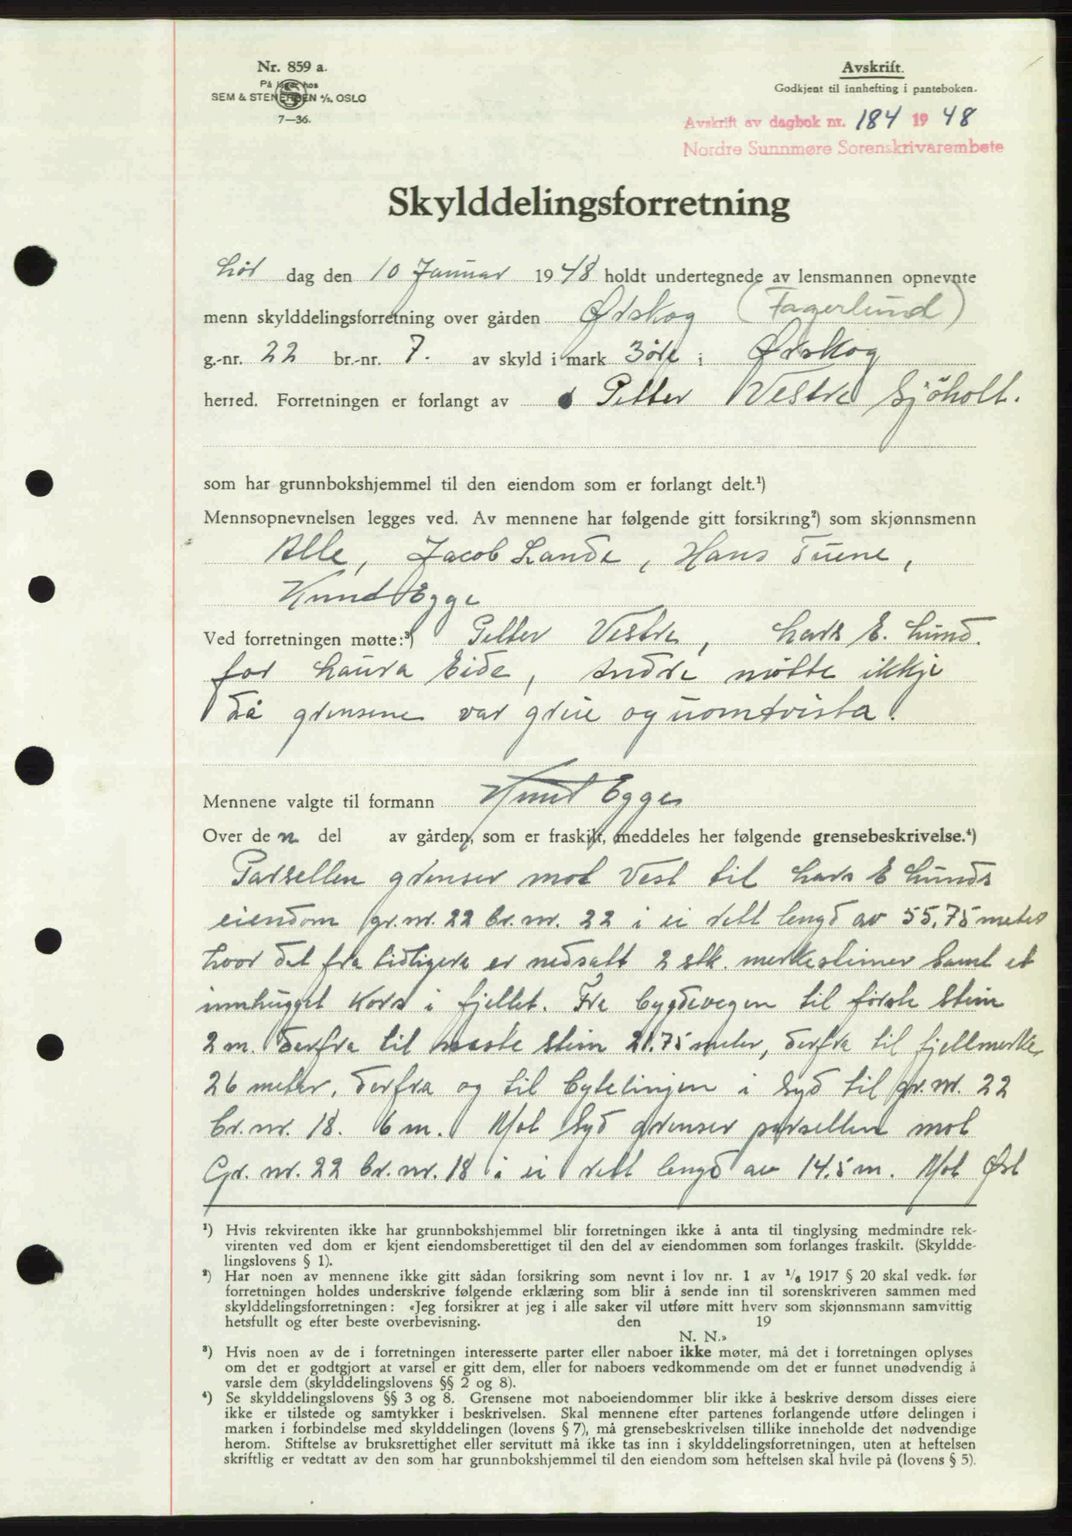 Nr. 859 a.
På lager hos
SEM & STENERSEN A/S, OSLO
7—36.
Avskrift.
Godkjent til innhefting i panteboken.
Avskrift av dagbok nr. 184 1948
Nordre Sunnmøre Sorenskrivarembete
Skylddelingsforretning
Lør dag den 10 Januar 1948 holdt undertegnede av lensmannen opnevnte
menn skylddelingsforretning over gården Ørskog (Fagerlund)
g.-nr. 22 br.-nr. 7. av skyld i mark 3 øre i Ørskog
herred. Forretningen er forlangt av Petter Vestre Sjöholt.
som har grunnbokshjemmel til den eiendom som er forlangt delt.¹)
Mennsopnevnelsen legges ved. Av mennene har følgende gitt forsikring²) som skjønnsmenn
Alle, Jacob Lande, Hans Tuene,
Knut Egge
Ved forretningen møtte:³) Petter Vestre, Lars E. Lund.
for Laura Eide, Andre møtte ikkje
då grensene var greie og uomtvista.
Mennene valgte til formann Knut Egge
Over den del av gården, som er fraskilt, meddeles her følgende grensebeskrivelse.⁴)
Parsellen grenser mot Vest til Lars E Lunds
eiendom gr.nr. 22 br.nr. 22 i ei rett lengd av 55,75 meter
hvor det fra tidligere er nedsatt 2 stk. merkesteiner samt et
innhugget kors i fjellet. Fra bygdevegen til første stein
2 m. derfra til neste stein 21.75 meter, derfra til fjellmerke
26 meter, derfra og til bytelinjen i Syd til gr.nr. 22
br.nr. 18. 6 m. Mot Syd grenser parsellen mot
Gr. nr. 22 br.nr. 18 i ei rett lengd av 14.5 m. Mot Øst
¹) Hvis rekvirenten ikke har grunnbokshjemmel blir forretningen ikke å anta til tinglysing medmindre rek-
virenten ved dom er kjent eiendomsberettiget til den del av eiendommen som forlanges fraskilt. (Skyldde-
lingslovens § 1).
²) Har noen av mennene ikke gitt sådan forsikring som nevnt i lov nr. 1 av ¹/₆ 1917 § 20 skal vedk. før
forretningen holdes underskrive følgende erklæring som blir å sende inn til sorenskriveren sammen med
skylddelingsforretningen: «Jeg forsikrer at jeg i alle saker vil utføre mitt hverv som skjønnsmann samvittig
hetsfullt og efter beste overbevisning. den 19
N. N.»
³) Hvis noen av de i forretningen interesserte parter eller naboer ikke møter, må det i forretningen oplyses
om det er godtgjort at varsel er gitt dem, eller for naboers vedkommende om det er funnet unødvendig å
varsle dem (skylddelingslovens §§ 2 og 8).
⁴) Se skylddelingslovens §§ 3 og 8. Grensene mot naboeiendommer blir ikke å beskrive dersom disses eiere
ikke er tilstede og samtykker i beskrivelsen. Skal mennene efter partenes forlangende utføre delingen i
marken i forbindelse med skylddelingen (lovens § 7), må grensebeskrivelsen tillike inneholde det nødvendige
herom. Stiftelse av bruksrettighet eller servitutt må ikke tas inn i skylddelingsforretningen, uten at heftelsen
skriftlig er vedtatt av den som har grunnbokshjemmel til den eiendom som heftelsen skal hvile på (lovens § 5).